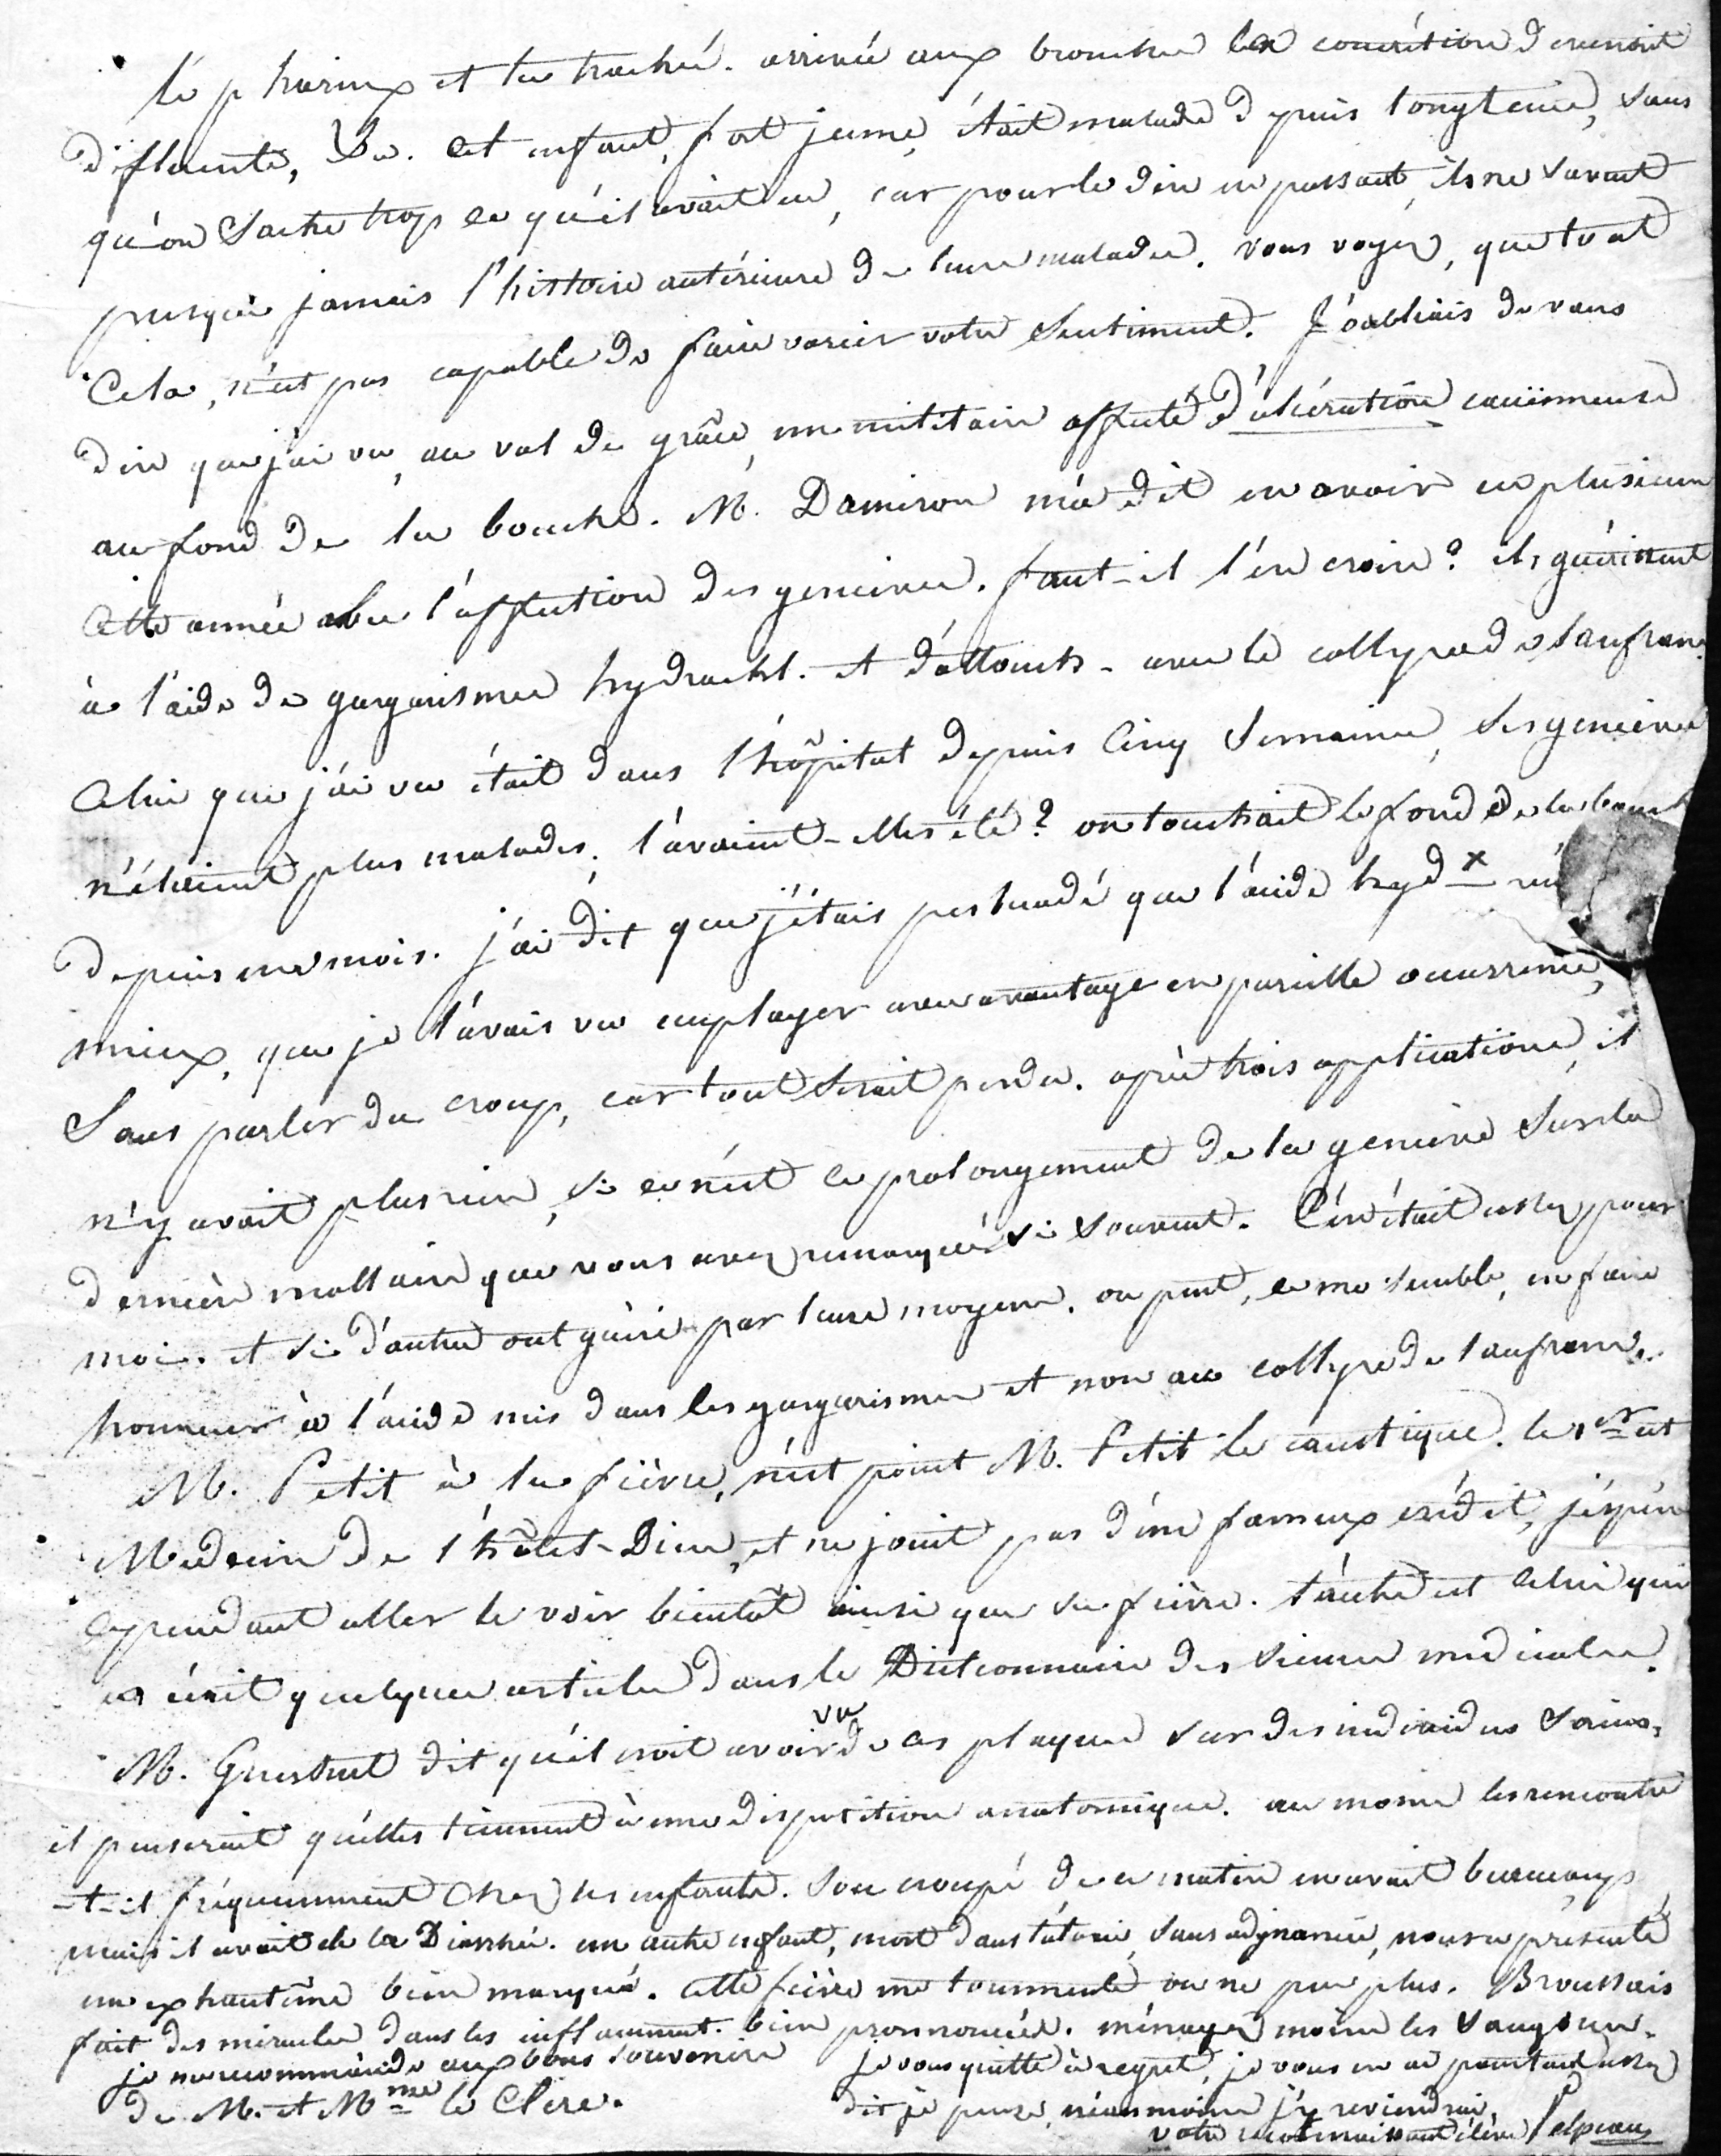 le pharinx et la trachée. arrivée aux bronches la concrétion devenait
difluente, &a. cet enfant, fort jeune, était malade depuis longtems, sans
qu'on sache trop ce qu'il avait eu, car pour le dire en passant, ils ne savent
presque jamais l'histoire antérieure de leurs malades. vous voyez, que tout
Cela, n'est pas capable de faire varier votre sentiment. J'oubliais de vous
dire que j'ai vu, au val de grâce, un militaire affecté d'ulcération couënneuse
au fond de la bouche. M. Damiron m'a dit en avoir eu plusieurs
cette année avec l'affection des gencives. faut-il l'en croire? ils guérissent
à l'aide de gargarismes hydrochl. et d'attouchts. avec le collyre de Lanfranc.
Celui que j'ai vu était dans l'hôpital depuis cinq semaines, ses gencives
n'étaient plus malades. l'avaient-elles été? on touchait le fond de la bouche
depuis un mois. j'ai dit que j'étais persuadé que l'acide hydx
mieux, que je l'avais vu employer avec avantage en pareille occurrence,
Sans parler du croup, car tout serait perdu. après trois applications, il
n'y avait plus rien, si ce n'est ce prolongement de la gencive sur la
dernière mollaire que vous avez remarqué si souvent. C'en était assez pour
moi. et si d'autres ont guéri par leurs moyens, on peut, ce me semble, en faire
honneur à l'acide mis dans les gargarismes et non au collyre de lanfranc.
M. Petit à la fièvre, n'est point M. Petit le caustique. le 1er est
Medecin de l'hôtel-Dieu, et ne jouit pas d'un fameux crédit, j'espère
cependant aller le voir bientôt ainsi que sa fièvre. l'autre est celui qui
a écrit quelques articles dans le Dictionnaire des sciences médicales.
M. Guersent dit qu'il croit avoir vu de ces plaques sur des individus sains,
il penserait qu'elles tiennent à une disposition anatomique. au moins les rencontre
-t-il fréquemment chez les enfants. Son croupé de ce matin en avait beaucoup
mais il avait de la Diarrhée. un autre enfant, mort dans l'ataxie, sans adynamie, nous a présenté
un exhantême bien marqué. cette fièvre me tourmente on ne peu plus. Broussais
fait des miracles dans les inflammat. bien prononcées. ménagez moins les sangsues.
je me recommande aux bons souvenirs
de M. et Mme le Clerc.
je vous quitte à regret, je vous en ai pourtant assez
dit je pense, néanmoins j'y reviendrai.
votre reconnaissant élève Velpeau